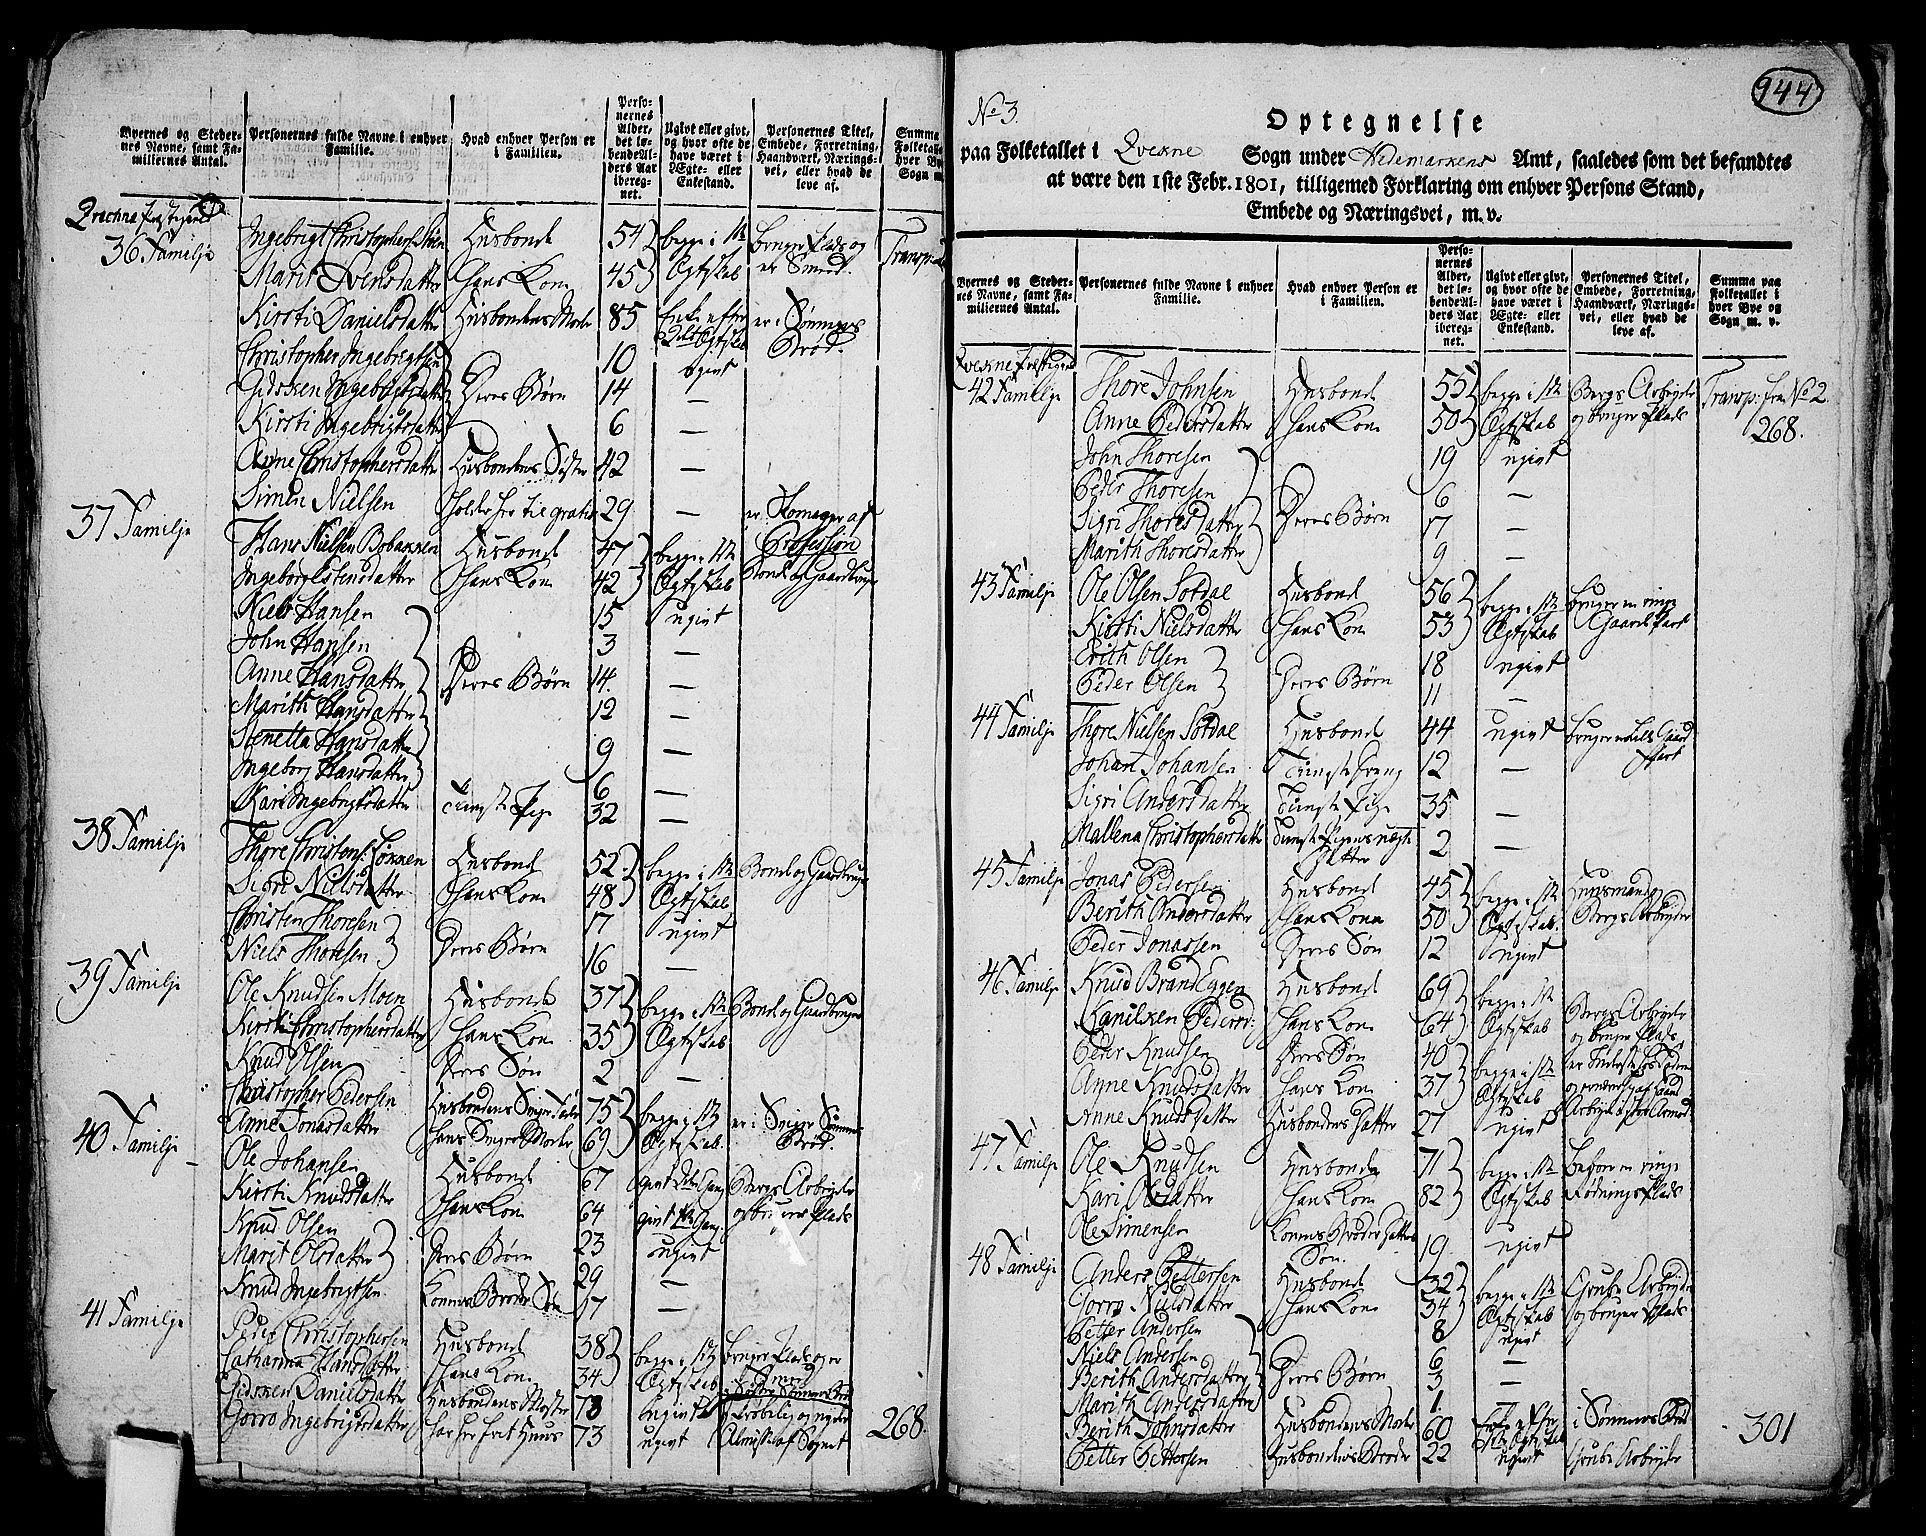 Byernes og Steder-
nes Navne, samt Fa-
miliernes Antal.
Personernes fulde Navne i enhver
Familie.
Hvad enhver Person er
i Familien.
Perso-
nernes
Alder,
det lø-
bende Al-
ders Aar
ibereg-
net.
Ugivt eller givt,
og hvor ofte de
have været i
Ægte- eller
Enkestand.
Personernes Titel,
Embede, Forretning,
Haandværk, Nærings-
vei, eller hvad de
leve af.
Summa
Folketalle
hver By
Sogn m.
36 Familje
Ingebrigt Christophers. Husbonde 54 begge i 1te bruger Plads og Transp:
Marit Svensdatter Hans Kone 45 Ægtskab er Smed.
Kirsti Danielsdatter Husbondens Moder 85 Enke efter er i Sønnens
2det Ægtskab Brød.
Christopher Ingebrigtsen 10 ugivt
Gidsken Ingebrigtsdatter Deres Børn 14 —
Kirsti Ingebrigtsdatter 6 —
Anne Christophersdatter Husbondens Søster 42 —
Simen Nielsen holder her til gratis 29 — er Skomager af
Profession
37 Familje
Hans Nielsen Bobakken Husbond 47 begge i 1te Bonde og Gaardbruger
Ingeborg Estensdatter Hans Kone 42 Ægtskab
Niels Hansen 15 ugivt
John Hansen 3 —
Anne Hansdatter Deres Børn 14. —
Marith Hansdatter 12 —
Stenetta Hansdatter 9 —
Ingeborg Hansdatter 6 —
Kari Ingebrigtsdatter Tieneste Pige 32 —
38 Familje
Thore Christens: Løkken Husbond 52 begge i 1te Bonde og Gaardbruger
Sigri Nielsdatter Hans Kone 48 Ægtskab
Christen Thoresen 17 ugivt
Niels Thoresen Deres Børn 16 —
39 Familje
Ole Knudsen Moen Husbonde 37 begge i 1te Bonde og Gaardbruger
Kirsti Christophersdatter Hans Kone 35 Ægtskab
Knud Olsen Deres Søn 2 —
Christopher Pedersen Husbondens Sviger Fader 75 begge i 1te er i Sviger Sønnens
Anne Jonasdatter Hans Sviger Moder 69 Ægtskab Brød.
40 Familje
Ole Johansen Husbond 67 givt 2den Gang Bergs Arbeyder
Kirsti Knudsdatter Hans Kone 64 givt 1te Gang og bruger Plads
Knud Olsen 23 ugivt
Marit Olsdatter Deres Børn 29 —
Knud Ingebrigtsen Konens Broder Søn 17 —
41 Familje
Peder Christophersen Husbond 38 begge i 1te bruger Plads og er
Catharina Hansdatter Hans Kone 34 Ægtskab Smed
Gidsken Danielsdatter Husbondens Moster 78 ugivt
Gorro Ingebrigtsdatter har her frit Huus 73 ugivt Almisse af Sognet
268.
944
No 3.
Optegnelse
paa Folketallet i Qvekne Sogn under Hedemarkens Amt, saaledes som det befandtes
at være den 1ste Febr. 1801, tilligemed Forklaring om enhver Persons Stand,
Embede og Næringsvei, m. v.
Byernes og Steder-
nes Navne, samt Fa-
miliernes Antal.
Personernes fulde Navne i enhver
Familie.
Hvad enhver Person er
i Familien.
Perso-
nernes
Alder,
det lø-
bende Al-
ders Aar
ibereg-
net.
Ugivt eller givt,
og hvor ofte de
have været i
Ægte- eller
Enkestand.
Personernes Titel,
Embede, Forretning,
Haandværk, Nærings-
vei, eller hvad de
leve af.
Summa paa
Folketallet i
hver Bye og
Sogn m. v.
Qvekne Prestegield
42 Familje Thore Johnsen Husbond 55 begge i 1te Bergs Arbeyder Transp: fra No 2
Anne Pedersdatter Hans Kone 50 Ægtskab og bruger Plads 268.
John Thoresen 19 ugivt
Peder Thoresen 6 —
Sigri Thoresdatter Deres Børn 17 —
Marith Thoresdatter 9 —
43 Familje Ole Olsen Sotdal Husbond 56 begge i 1te bruger en ringe
Kirsti Nielsdatter Hans Kone 53 Ægtskab Gaard Part
Erith Olsen 18 ugivt
Peder Olsen Deres Børn 11 —
44 Familje Thore Nielsen Sotdal Husbond 44 ugivt bruger en liden Gaard
Part
Johan Johansen Tieneste Dreng 12 —
Sigri Andersdatter Tieneste Pige 35 —
Mallena Christophersdatter Tieneste Pigens uægte 2 —
Datter
45 Familje Jonas Pedersen Husbond 45 begge i 1te Huusmand og
Berith Andersdatter Hans Kone 50 Ægtskab. Bergs Arbeyder
Peder Jonassen Deres Søn 12 ugivt
46 Familje Knud Brand Eggen Husbond 69 begge i 1te Bergs Arbeyder
Kanilken Peders: Hans Kone 64 Ægtskab og bruger Plads,
Peder Knudsen Deres Søn 40 begge i 1te
Anne Knudsdatter Hans Kone 37 Ægtskab
Anne Knudsdatter Husbondens Datter 27 ugivt
47 Familje Ole Knudsen Husbonde 71 begge i 1te beboer en ringe
Kari Olsdatter Hans Kone 82 Ægtskab Rødnings Plads
Ole Simensen Konens Broder Datters 19 ugivt
Søn.
48 Familje Anders Pettersen Husbond 32 begge i 1te Grube Arbeyder
Gorro Nielsdatter Hans Kone 34 Ægtskab og bruger Plads
Petter Andersen 8 ugivt
Niels Andersen 6 —
Berith Andersdatter Deres Børn 3 —
Marith Andersdatter 1. —
Berith Johnsdatter Husbondens Moder 60 Enke efter i Sønnens Brød
1te Ægtskab
Petter Pettersen Husbondens Broder 22 ugivt Grube Arbeyder
301